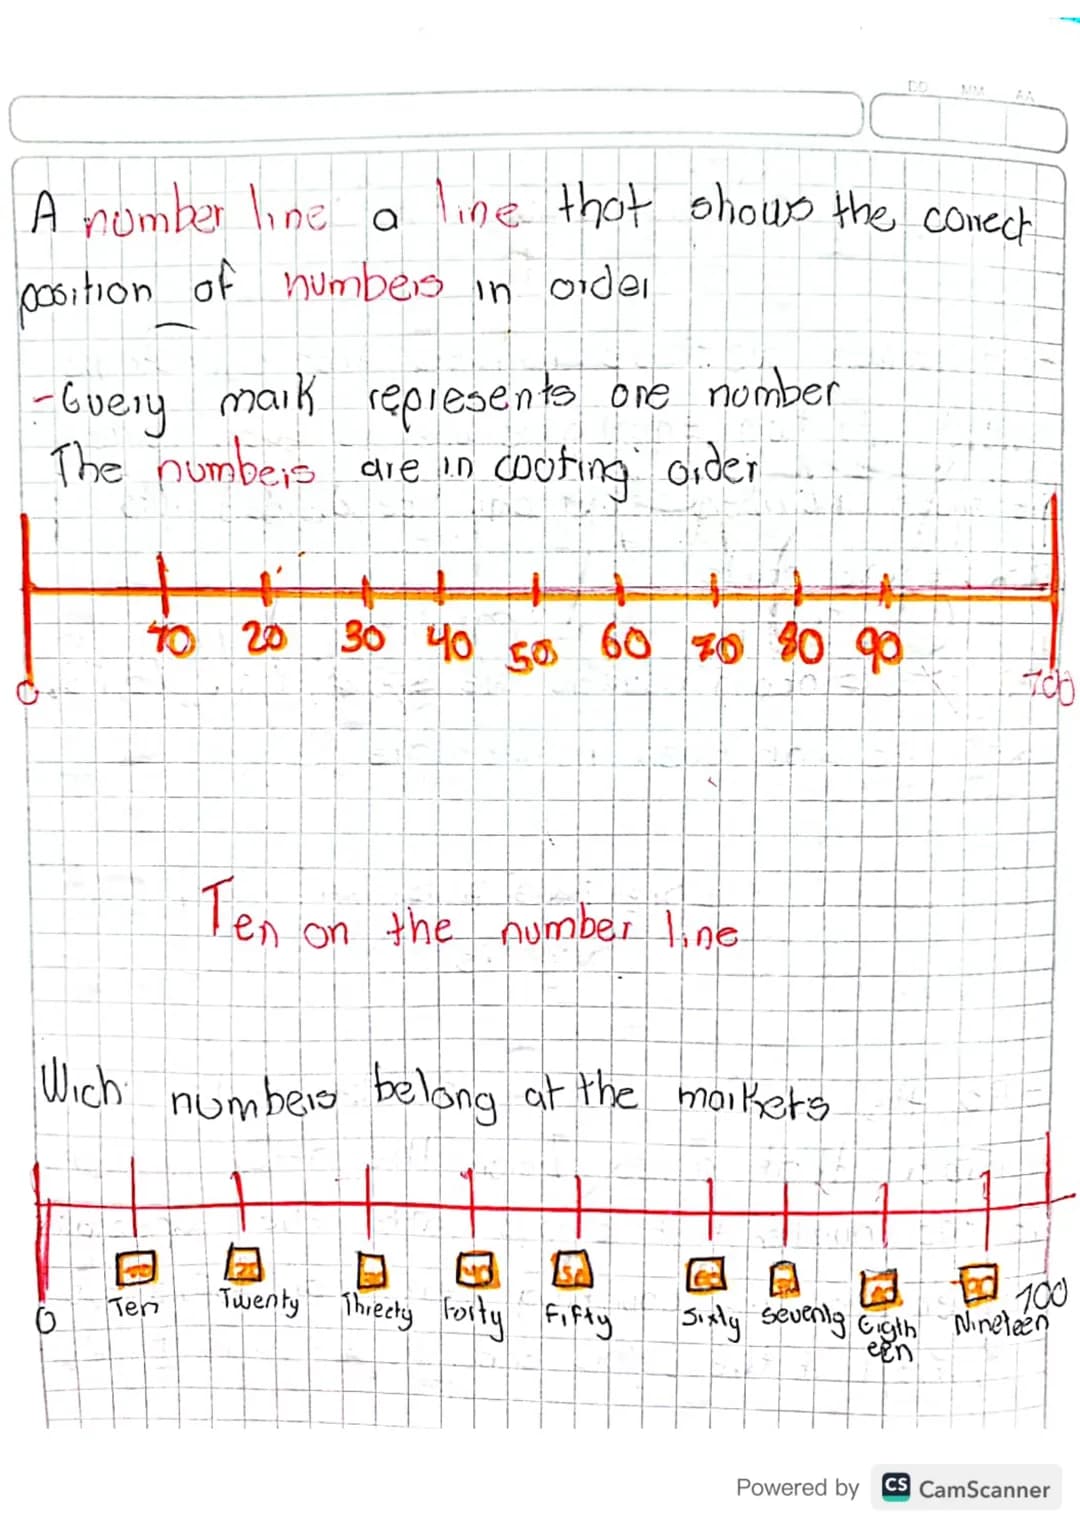 DD MM AA
A number line a line that shows the correct
position of numbers in order
-Every mark represents one number
The numbers are in cooting order
10 20 30 40 50 60 70 80 90
0 100
Ten on the number line
Wich numbers belong at the markers
10 20 30 40 50 60 70 80 90
0 Ten Twenty Threety Forty Fifty Sixty Seventy Eigth Nineteen 100
een
Powered by CS CamScanner